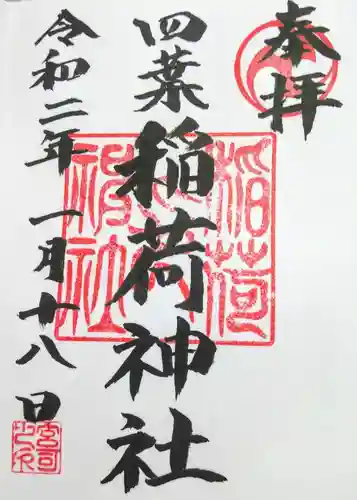 奉拝
四葉稲荷神社
令和二年 一月十八日
稲荷
神社
宮司
之印